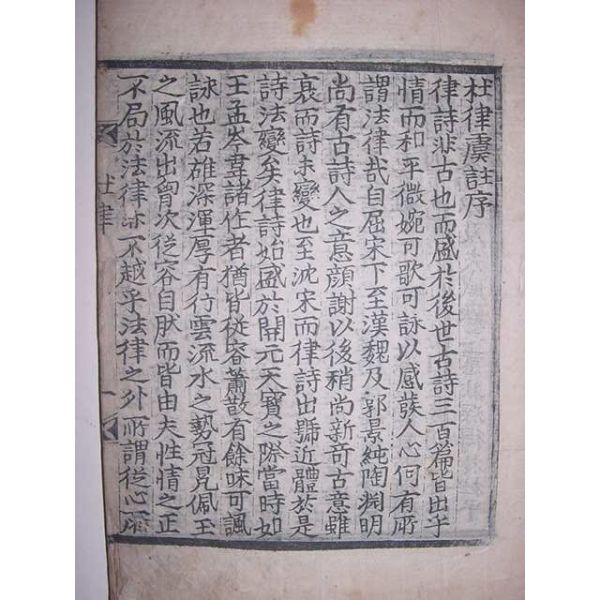 杜律虞註序
律詩非古也而盛於後世古詩三百篇皆出乎
情而和平微婉可歌可詠以感發人心何有所
謂法律哉自屈宋下至漢魏及郭景純陶淵明
尚有古詩人之意顏謝以後稍尚新奇古意雖
衰而詩未變也至沈宋而律詩出號近體於是
詩法變矣律詩始盛於開元天寶之際當時如
王孟岑韋諸作者猶皆從容蕭散有餘味可諷
詠也若雄深渾厚有行雲流水之勢冠冕佩玉
之風流出胷次從容自然而皆由夫性情之正
不局於法律亦不越乎法律之外所謂從心所
杜律
一